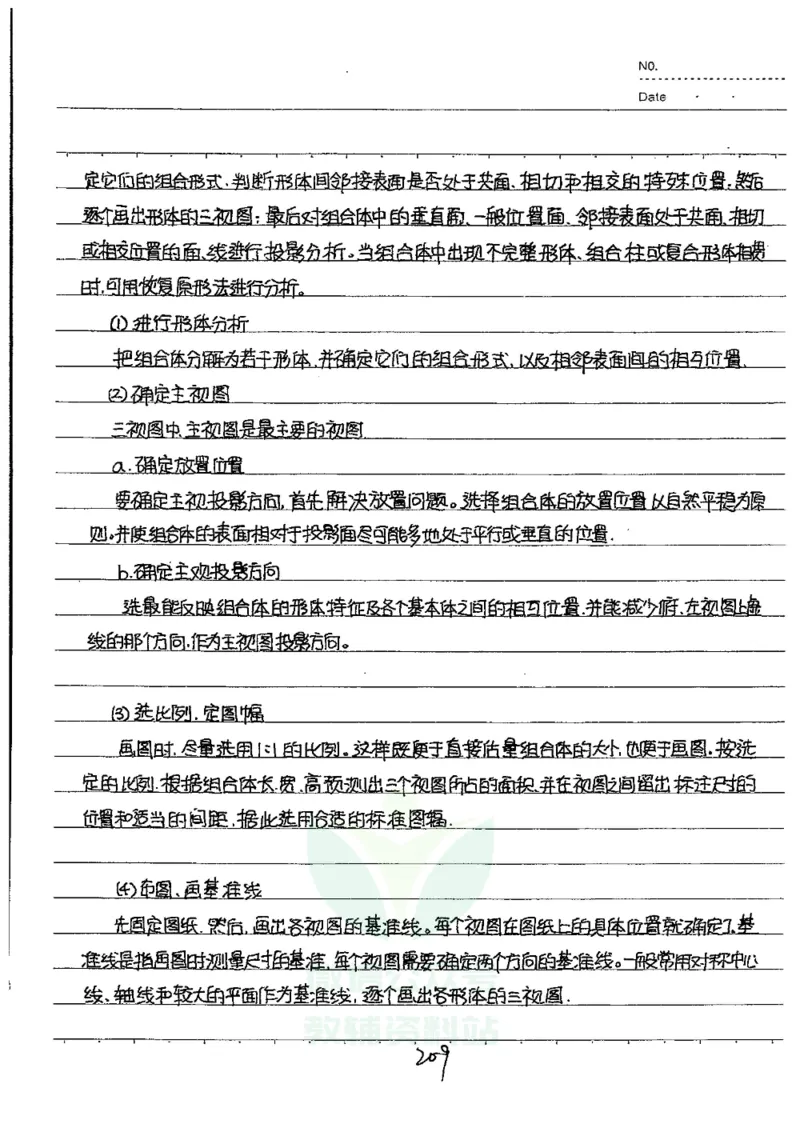 NO.
Date
定它们的组合形式,判断形体间邻接表面是否处于共面、相切和相交的特殊位置;然后
逐个画出形体的三视图;最后对组合体中的垂直面、一般位置面、邻接表面处于共面、相切
或相交位置的面、线进行投影分析。当组合体中出现不完整形体、组合柱或复合形体相贯
时,可用恢复原形法进行分析。
(1) 进行形体分析
把组合体分解为若干形体,并确定它们的组合形式,以及相邻表面间的相互位置.
(2) 确定主视图
三视图中,主视图是最主要的视图
a.确定放置位置
要确定主视投影方向,首先解决放置问题。选择组合体的放置位置以自然平稳为原
则。并使组合体的表面相对于投影面尽可能多地处于平行或垂直的位置.
b.确定主视投影方向
选最能反映组合体的形体特征及各个基本体之间的相互位置,并能减少俯、左视图上虚
线的那个方向,作为主视图投影方向。
(3) 选比例,定图幅
画图时,尽量选用1:1的比例。这样既便于直接估量组合体的大小,也便于画图。按选
定的比例,根据组合体长、宽、高预测出三个视图所占的面积,并在视图之间留出标注尺寸的
位置和适当的间距,据此选用合适的标准图幅.
(4) 布图、画基准线
先固定图纸,然后,画出各视图的基准线。每个视图在图纸上的具体位置就确定了.基
准线是指画图时测量尺寸的基准,每个视图需要确定两个方向的基准线。一般常用对称中心
线、轴线和较大的平面作为基准线,逐个画出各形体的三视图.
教辅资料站
209